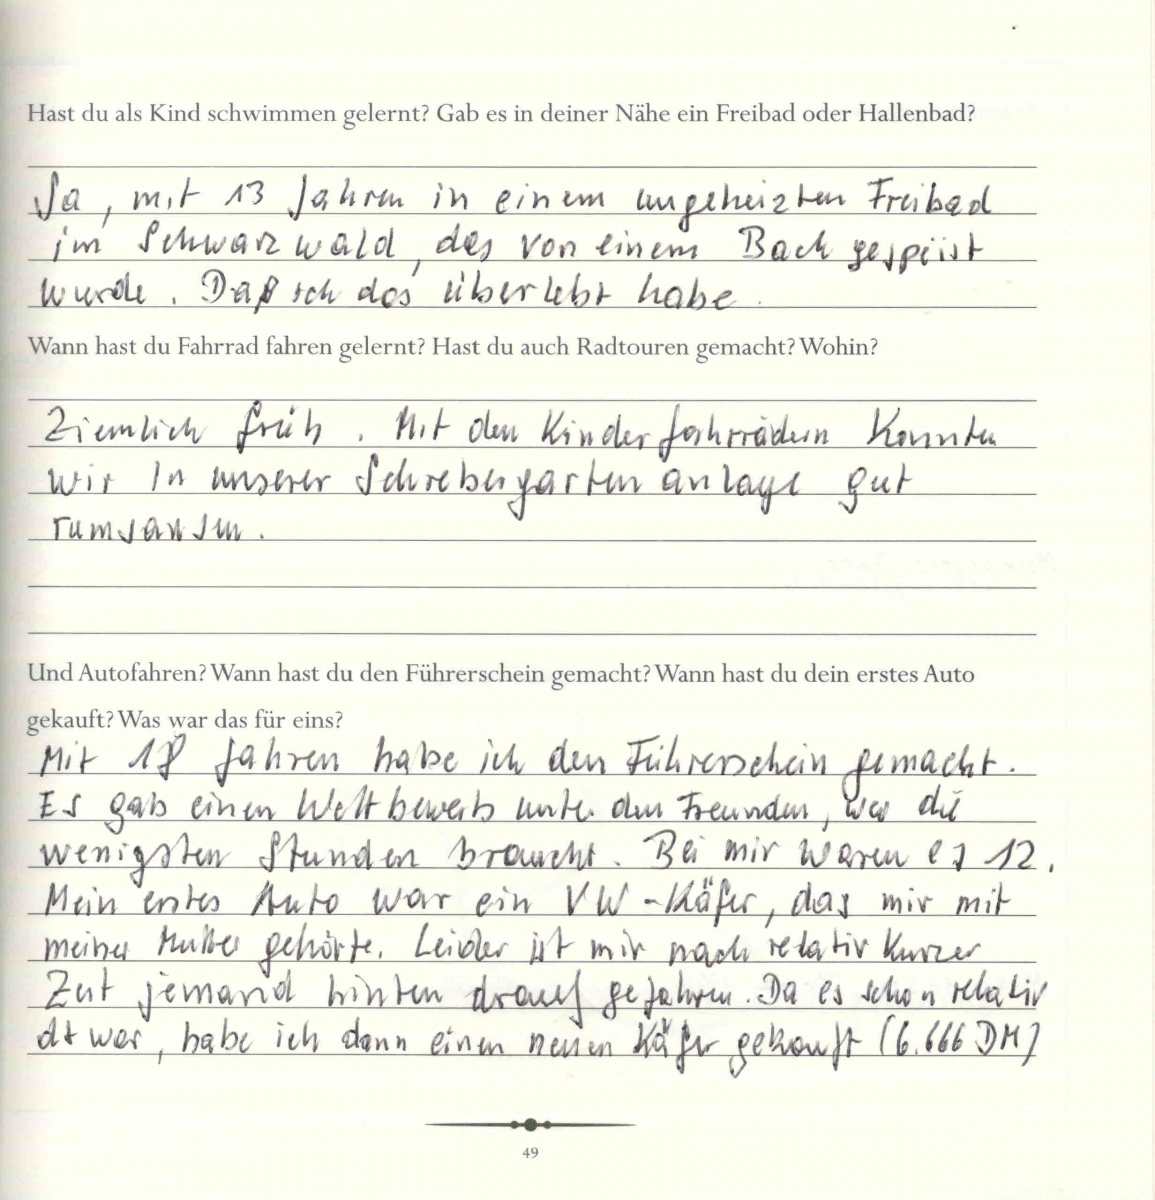 Hast du als Kind schwimmen gelernt? Gab es in deiner Nähe ein Freibad oder Hallenbad?
Ja, mit 13 Jahren in einem ungeheizten Freibad
im Schwarzwald, das von einem Bach gespeist
wurde. Daß ich das überlebt habe.
Wann hast du Fahrrad fahren gelernt? Hast du auch Radtouren gemacht? Wohin?
Ziemlich früh. Mit den Kinderfahrrädern konnten
wir in unserer Schrebergartenanlage gut
rumsausen.
Und Autofahren? Wann hast du den Führerschein gemacht? Wann hast du dein erstes Auto
gekauft? Was war das für eins?
Mit 18 Jahren habe ich den Führerschein gemacht.
Es gab einen Wettbewerb unter den Freunden, wer die
wenigsten Stunden braucht. Bei mir waren es 12.
Mein erstes Auto war ein VW-Käfer, das mir mit
meiner Mutter gehörte. Leider ist mir nach relativ kurzer
Zeit jemand hinten drauf gefahren. Da es schon relativ
alt war, habe ich dann einen neuen Käfer gekauft (6.666 DM)
49